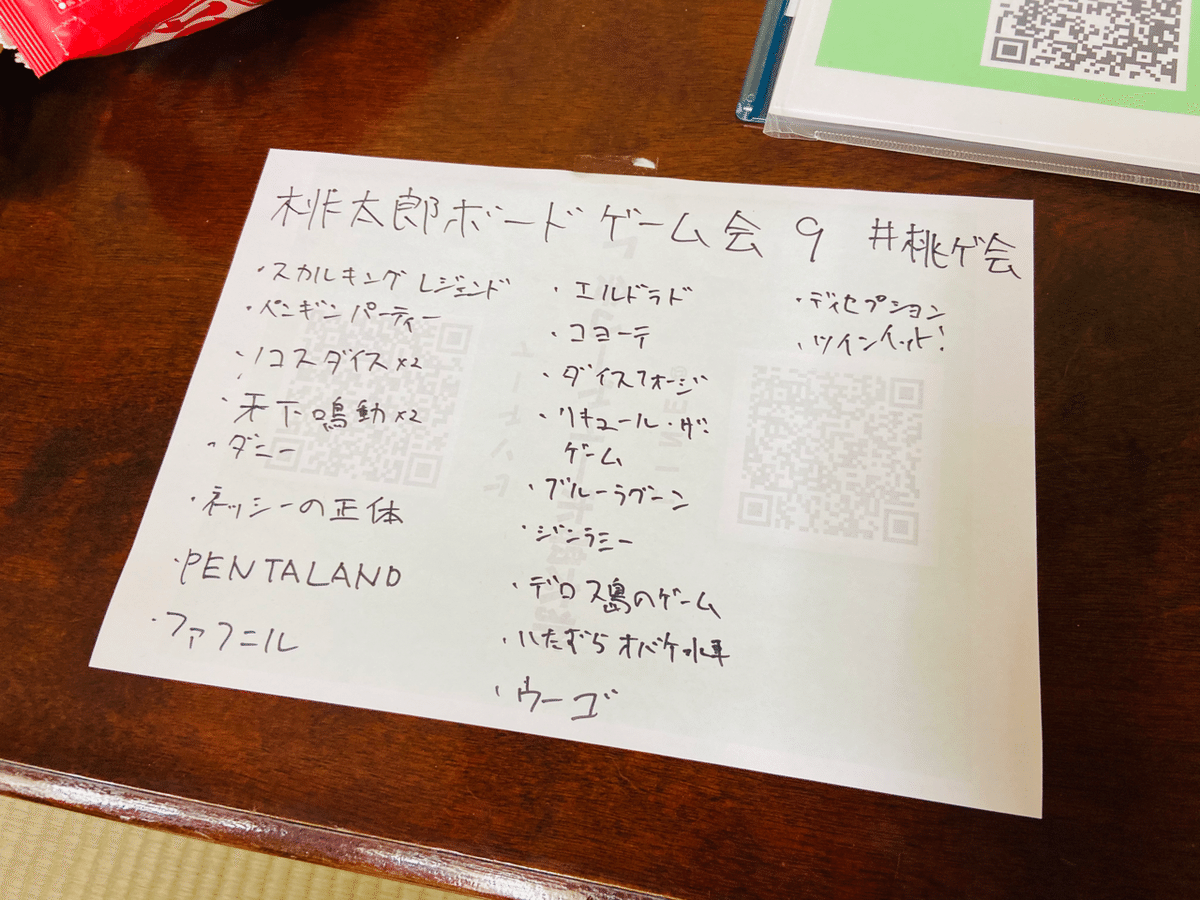 桃太郎ボードゲーム会 9 #桃ゲ会
・スカルキング レジェンド
・ペンギン パーティー
・ノコスダイス×2
・天下鳴動×2
・ダニー
・ネッシーの正体
・PENTALAND
・ファフニル
・エルドラド
・コヨーテ
・ダイスフォージ
・リキュール・ザ・
ゲーム
・ブルーラグーン
・ジンラミー
・デロス島のゲーム
・いたずらオバケ水車
・ウーゴ
・ディセプション
・ツインイット!